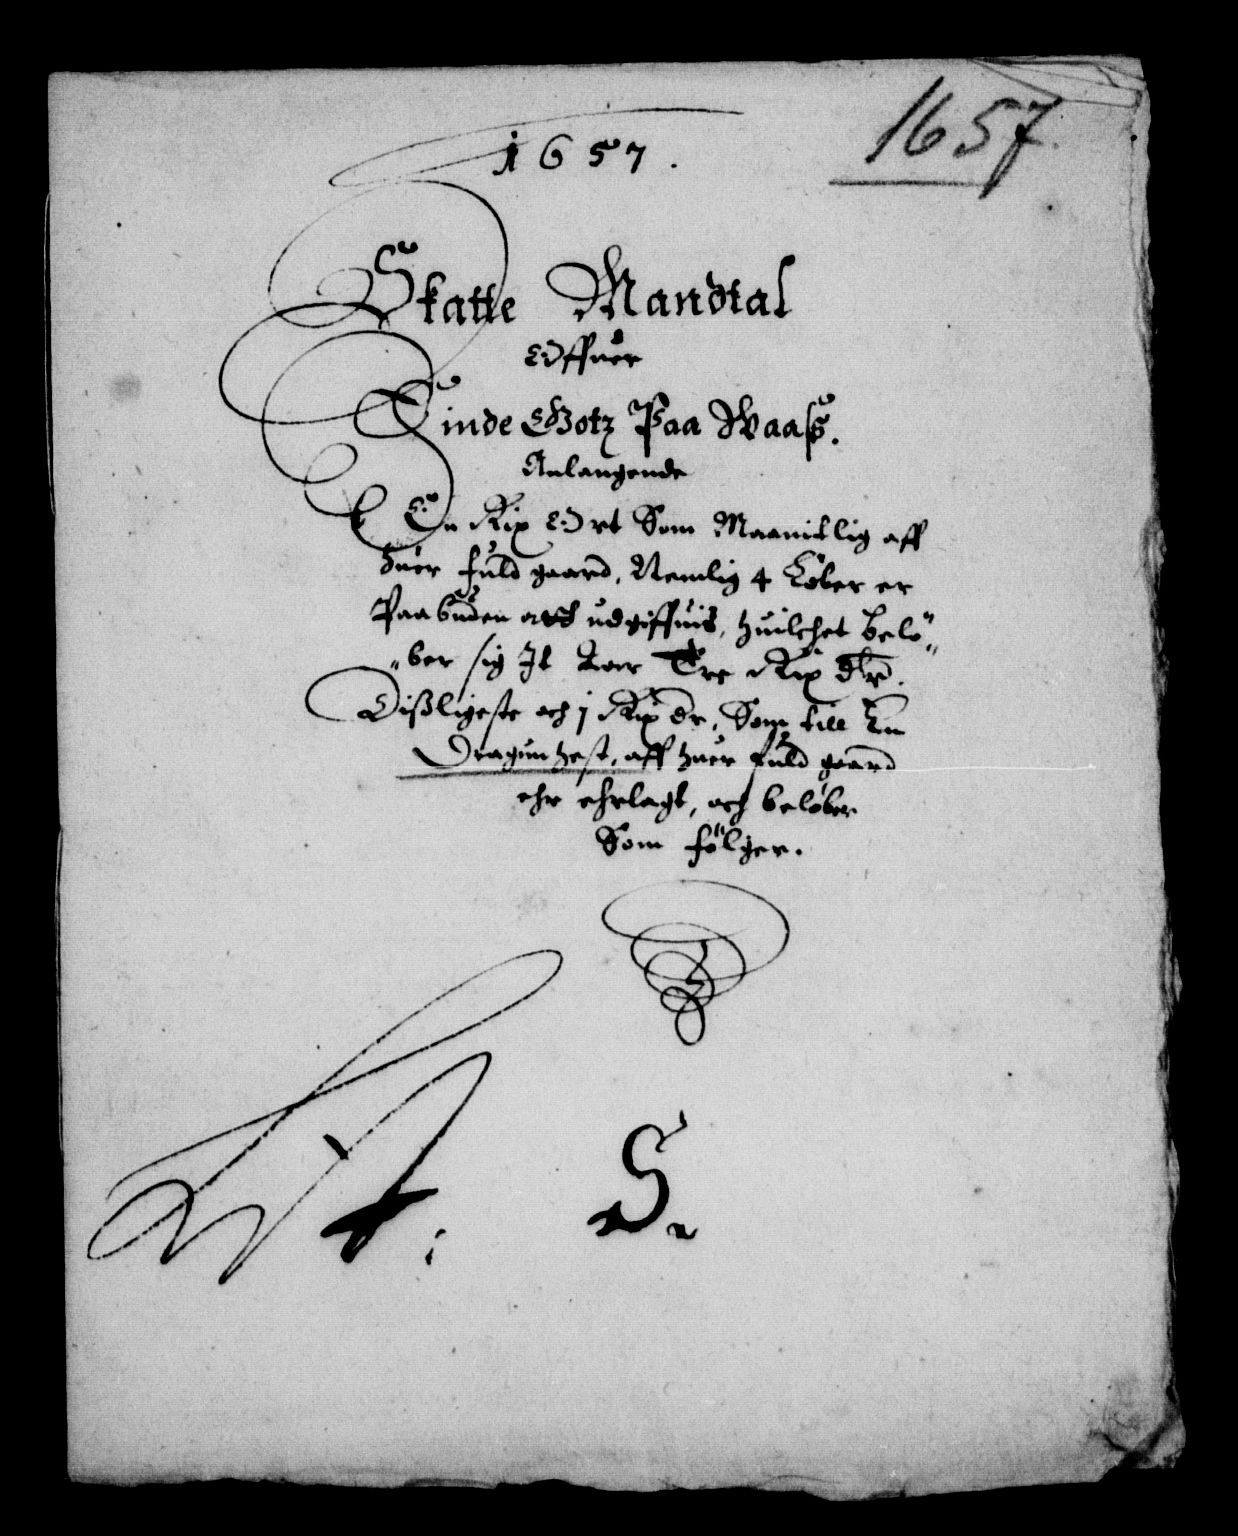 1657
1657.
Skatte Mandtal
Offuer
Finde Gotz Paa Waasß.
Anlangende
En Rix Ort Som Maanitlig aff
huer fuld gaard, Nemlig 4 Løber er
Paabuden att udgiffuis, huilchet belö„
„ber sig It Aar Tre Rix dlr.
Dißligeste och j Rix dr, Som till En
Dragun hest, aff huer fuld gaard
ehr ehrlagt, och beløber
Som fölger.
S.